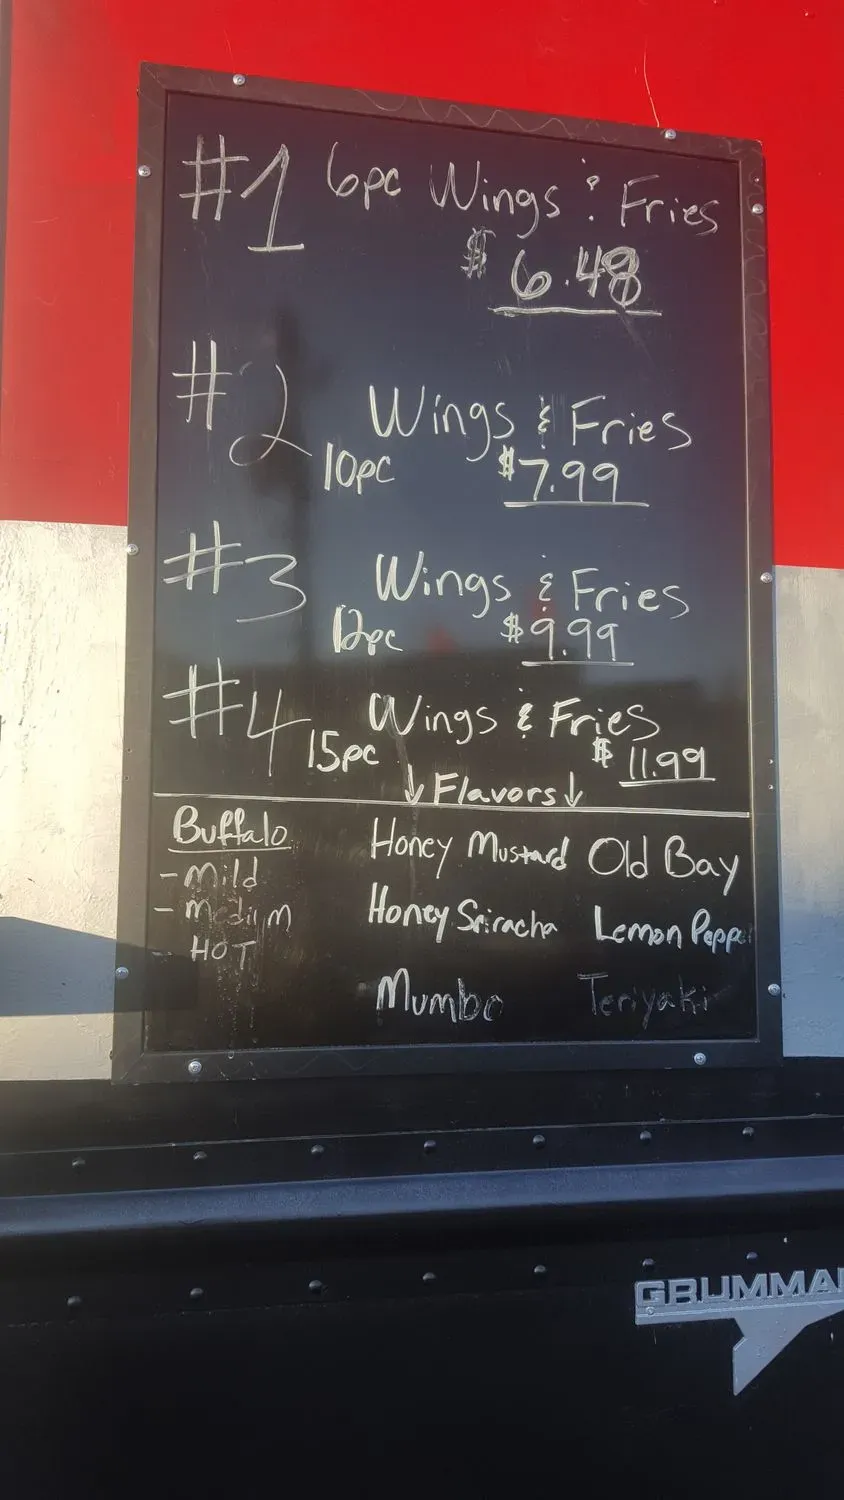 #1 6pc Wings & Fries
$6.48
#2 Wings & Fries
10pc $7.99
#3 Wings & Fries
12pc $9.99
#4 Wings & Fries
15pc $11.99
↓Flavors↓
Buffalo
- Mild
- Medium
- HOT
Honey Mustard
Honey Sriracha
Mumbo
Old Bay
Lemon Pepper
Teriyaki
GRUMMA